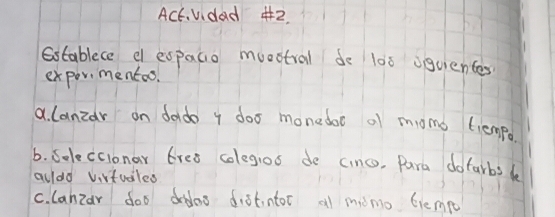 Actividad #2.
Establece el espacio muestral de los siguientes
experimentos.
a. Lanzar un dado y dos monedas al mismo tiempo.
b. Seleccionar tres colegios de cinco, para dotarlos de
aulas virtuales
c. Lanzar dos dados distintos al mismo tiempo